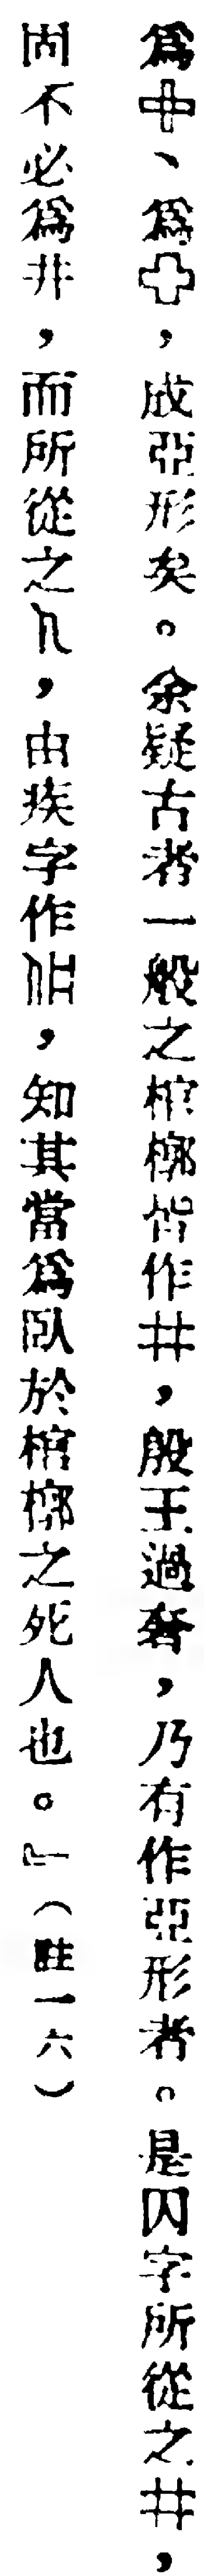 爲、爲,成亞形矣。余疑古者一般之棺槨皆作井,殷王過奢,乃有作亞形者。是囚字所從之井,
固不必爲井,而所從之人,由疾字作,知其當爲臥於棺槨之死人也。』(註一六)